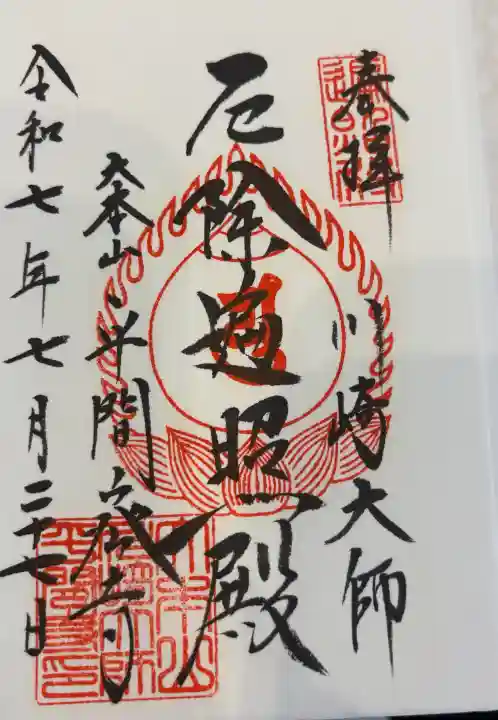 奉拝
川崎大師
厄除遍照殿
大本山 平間寺
令和七年七月二十七日